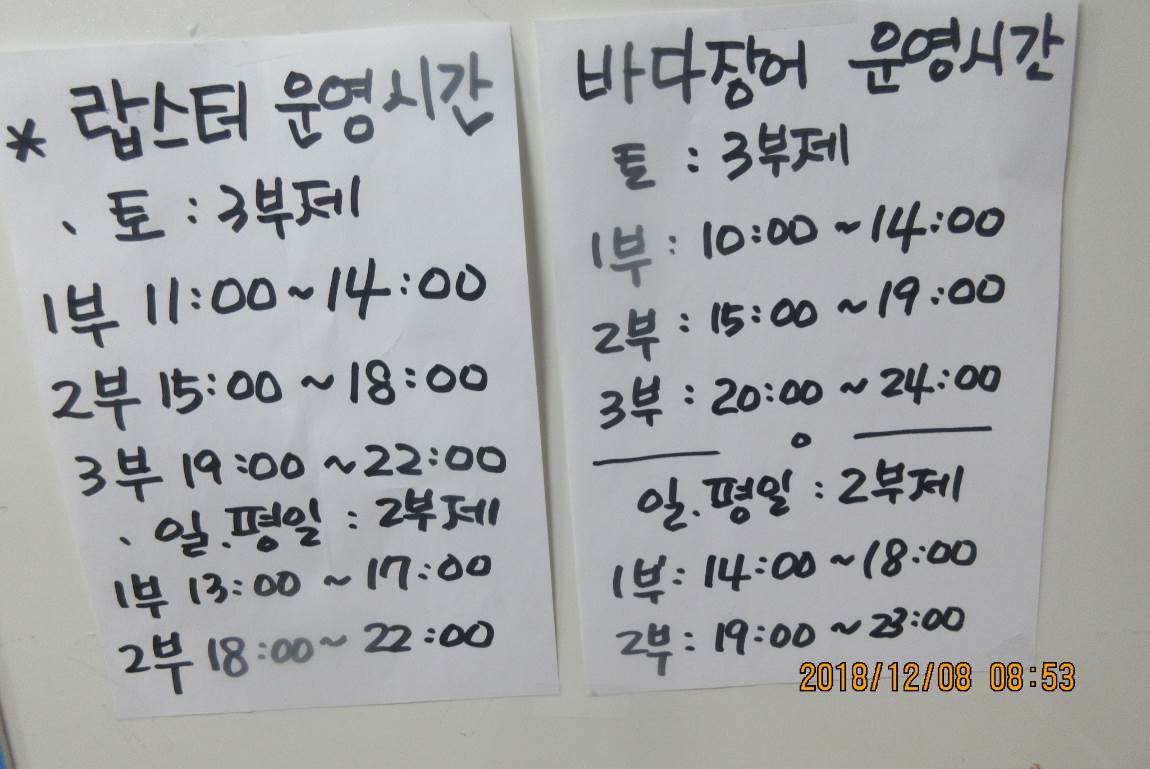 * 랍스터 운영시간
. 토 : 3부제
1부 11:00~14:00
2부 15:00~18:00
3부 19:00~22:00
. 일.평일 : 2부제
1부 13:00~17:00
2부 18:00~22:00
바다장어 운영시간
토 : 3부제
1부 : 10:00~14:00
2부 : 15:00~19:00
3부 : 20:00~24:00
일.평일 : 2부제
1부 : 14:00~18:00
2부 : 19:00~23:00
2018/12/08 08:53